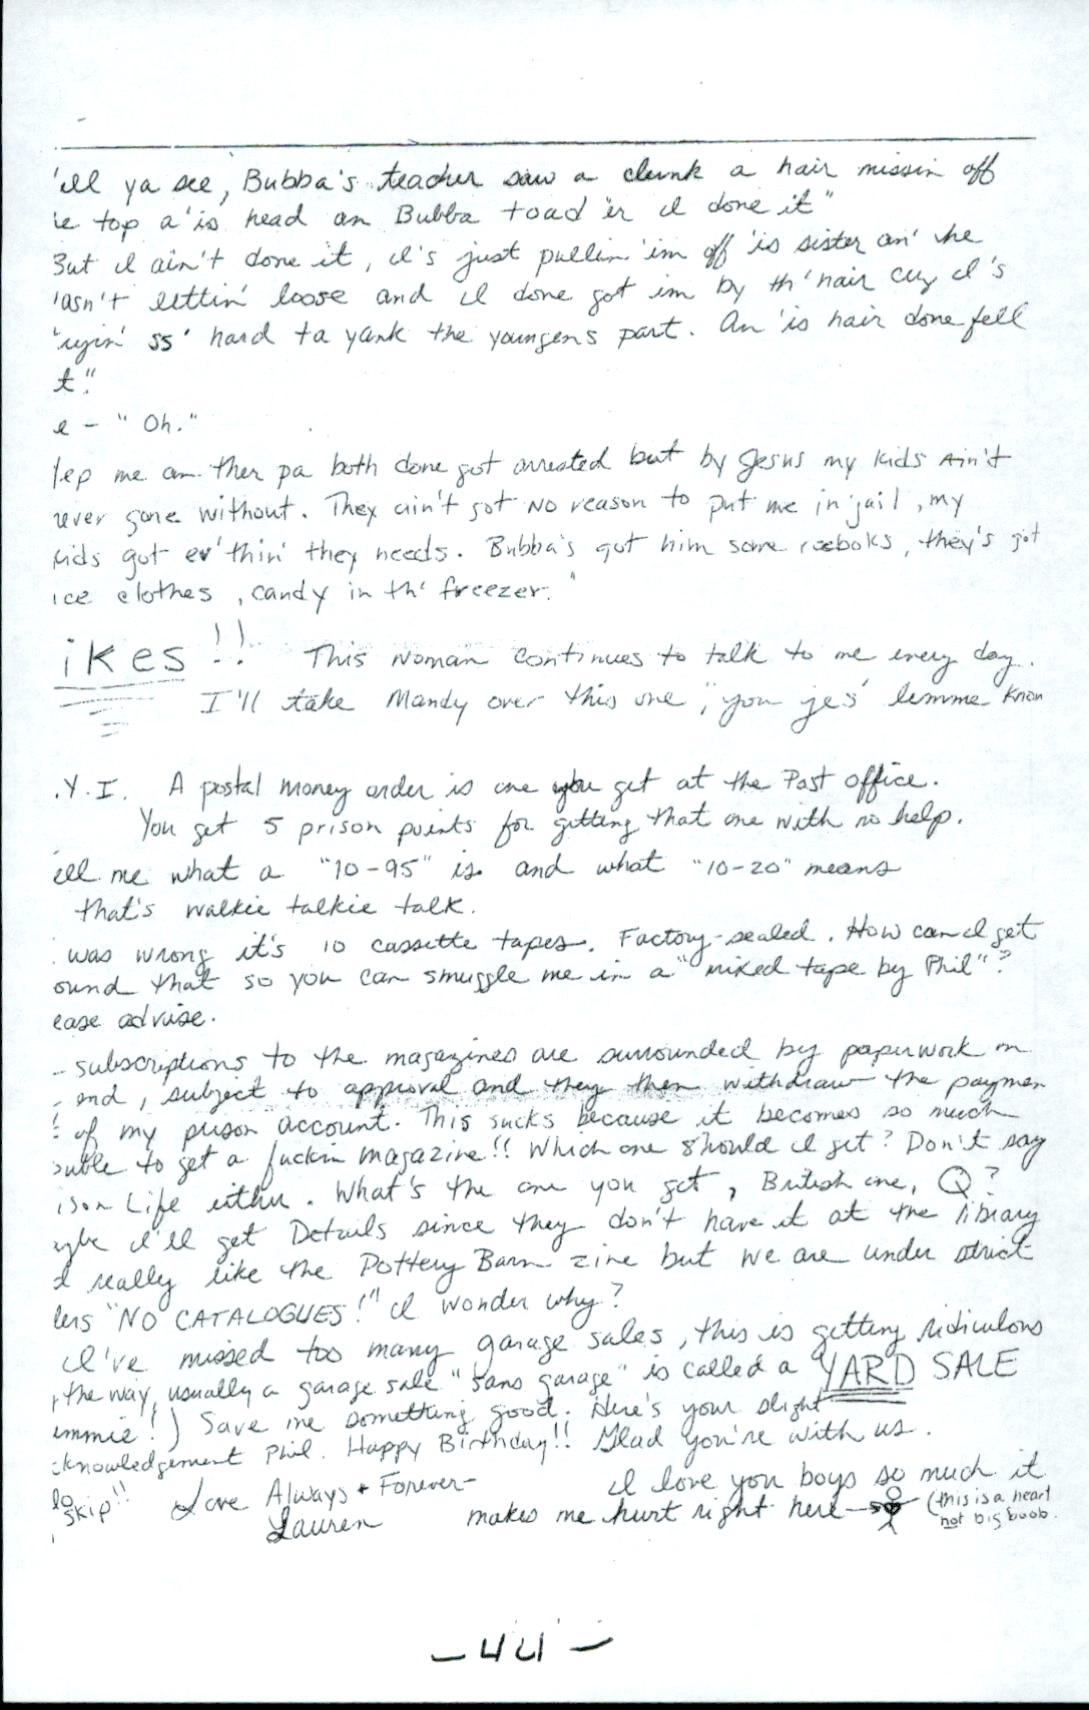 'ell ya see, Bubba's teacher saw a clunk a hair missin off
'e top a 'is head an Bubba toad 'er I done it"
But I ain't done it, I's just pullin 'im off 'is sister an' he
'asn't lettin' loose and I done got im by th' hair cuz I's
'ryin' ss' hard ta yank the youngens part. An 'is hair done fell
t."
e - "Oh."
Yep me an ther pa both done got arrested but by Jesus my kids Ain't
never gone without. They ain't got NO reason to put me in jail, my
kids got ev'thin' they needs. Bubba's got him some reeboks, they's got
ice clothes, candy in th' freezer."
ikes!! This woman continues to talk to me every day.
I'll take Mandy over this one, "you jes' lemme know
.Y.I. A postal money order is one you get at the Post office.
You get 5 prison points for getting that one with no help.
ell me what a "10-95" is and what "10-20" means
that's walkie talkie talk.
was wrong it's 10 cassette tapes. Factory-sealed. How can I get
ound that so you can smuggle me in a "mixed tape by Phil"?
ease advise.
- subscriptions to the magazines are surrounded by paperwork on
end, subject to approval and they then withdraw the paymen
of my prison account. This sucks because it becomes so much
ouble to get a fuckin magazine!! Which one should I get? Don't say
ison Life either. What's the one you get, British one, Q?
aybe I'll get Details since they don't have it at the library
I really like the Pottery Barn zine but we are under strict
ders "NO CATALOGUES!" I wonder why?
I've missed too many garage sales, this is getting ridiculous
, the way, usually a garage sale "sans garage" is called a YARD SALE
immie!) Save me something good. Here's your slight
cknowledgement Phil. Happy Birthday!! Glad you're with us.
lo Skip!! Love Always + Forever- I love you boys so much it
Lauren makes me hurt right here (this is a heart
not big boob.
-44-